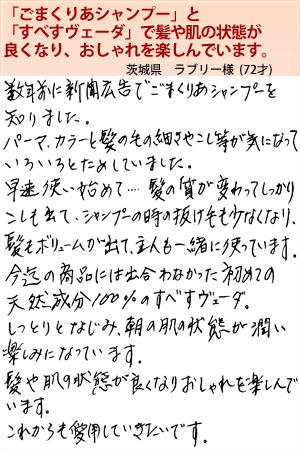 「ごまくりあシャンプー」と
「すべすヴェーダ」で髪や肌の状態が
良くなり、おしゃれを楽しんでいます。
茨城県　ラブリー様 (72才)
数年前に新聞広告でごまくりあシャンプーを
知りました。
パーマ、カラーと髪の毛の細さやこし等が気になって
いろいろとためしていました。
早速使い始めて…. 髪の質が変わってしっかり
こしも出て、シャンプーの時の抜け毛も少なくなり、
髪もボリュームが出て、主人も一緒に使っています。
今迄の商品には出合わなかった初めての
天然成分100%のすべすヴェーダ。
しっとりとなじみ、朝の肌の状態が潤い
楽しみになっています。
髪や肌の状態が良くなりおしゃれを楽しんで
います。
これからも愛用していきたいです。